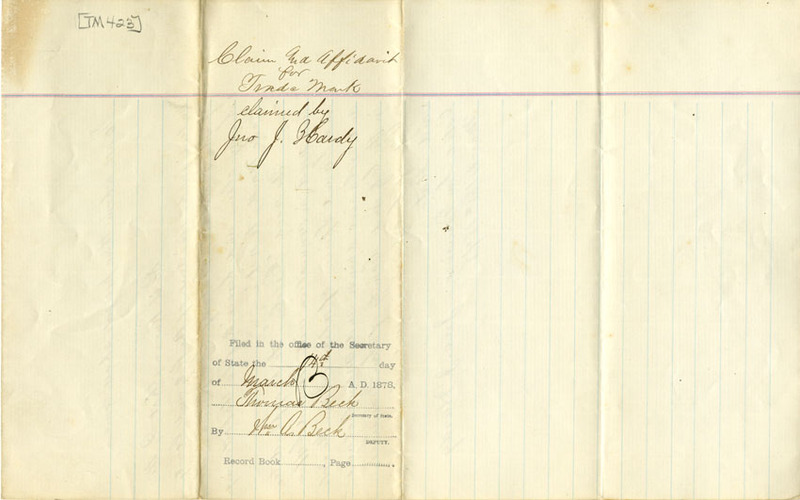 [TM 423]
Claim and Affidavit
for
Trade Mark
claimed by
Jno J. Hardy
Filed in the office of the Secretary
of State the 4th day
of March A. D. 1878,
Thomas Beck
Secretary of State.
By Wm A. Beck
DEPUTY.
Record Book , Page .